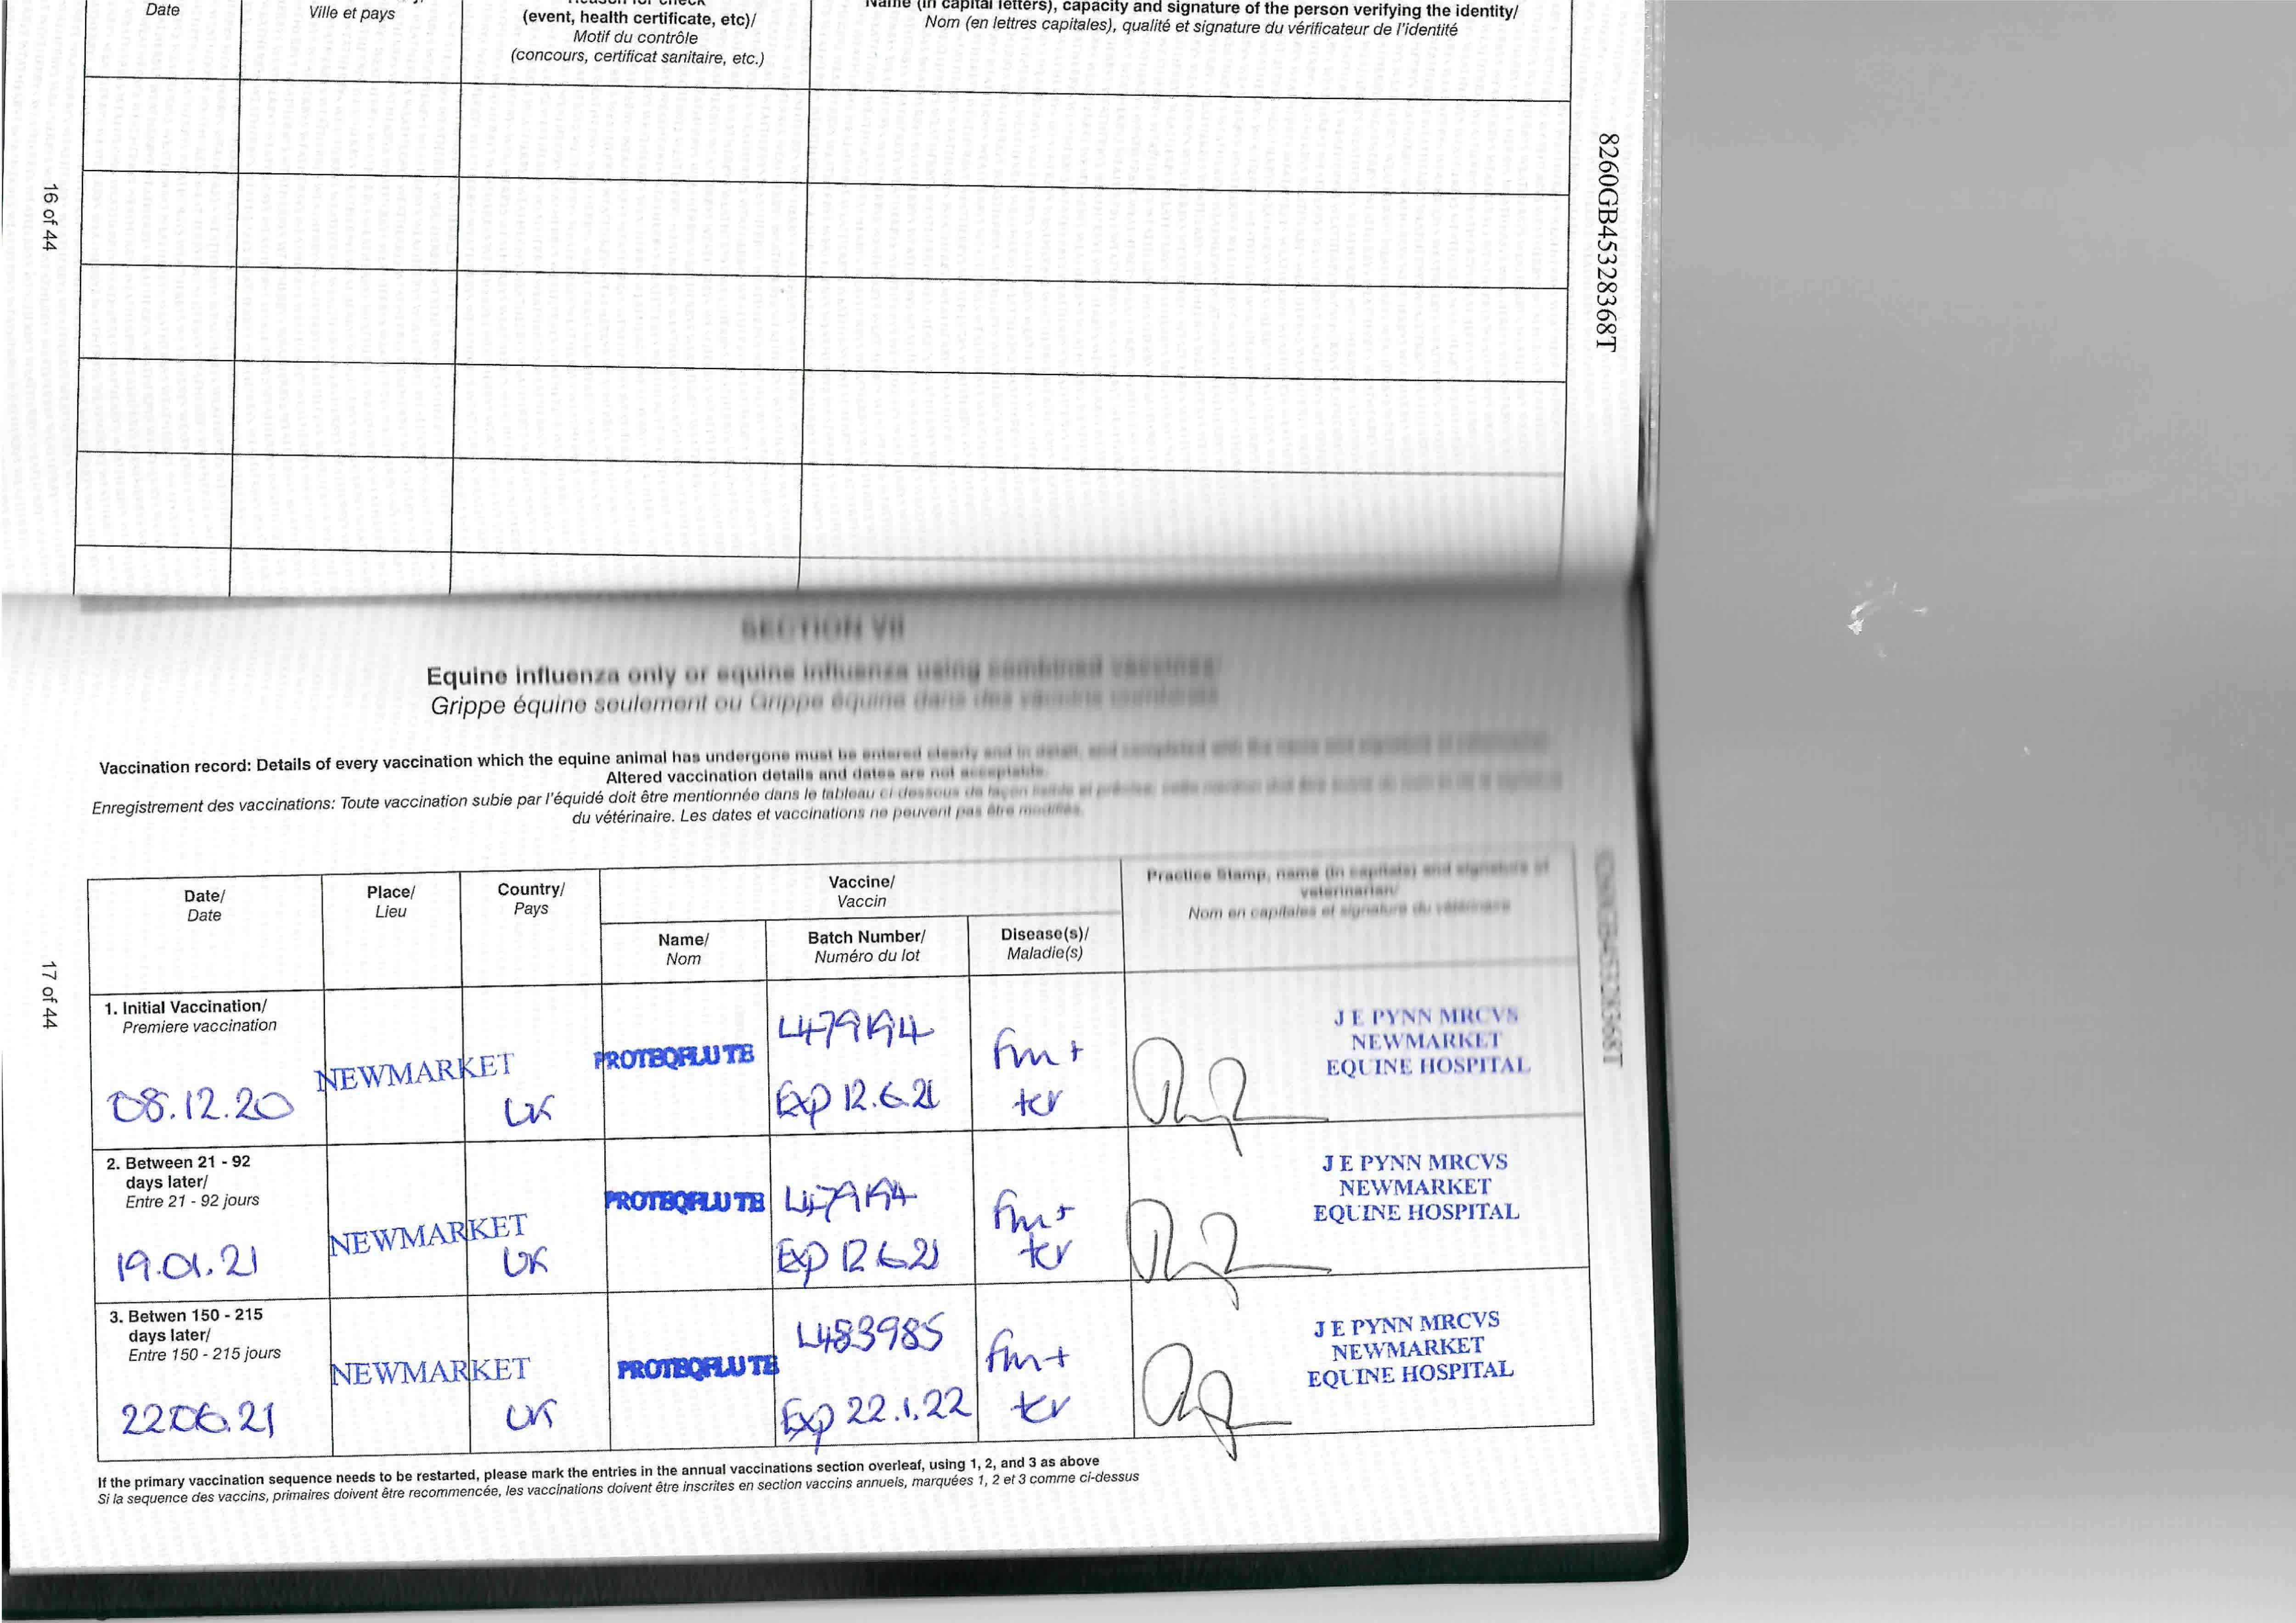 Date
Ville et pays
(event, health certificate, etc)/
Motif du contrôle
(concours, certificat sanitaire, etc.)
Name (in capital letters), capacity and signature of the person verifying the identity/
Nom (en lettres capitales), qualité et signature du vérificateur de l'identité
16 of 44
8260GB45328368T
SECTION VII
Equine influenza only or equine influenza using combined vaccines/
Grippe équine seulement ou Grippe équine dans des vaccins combinés
Vaccination record: Details of every vaccination which the equine animal has undergone must be entered clearly and in detail, and completed with the name and signature of veterinarian
Altered vaccination details and dates are not acceptable.
Enregistrement des vaccinations: Toute vaccination subie par l'équidé doit être mentionnée dans le tableau ci dessous de façon lisible et précise,
du vétérinaire. Les dates et vaccinations ne peuvent pas être modifiés.
Date/
Date
Place/
Lieu
Country/
Pays
Vaccine/
Vaccin
Name/
Nom
Batch Number/
Numéro du lot
Disease(s)/
Maladie(s)
Practice Stamp, name (in capitals) and signature of
veterinarian/
Nom en capitales et signature du vétérinaire
17 of 44
1. Initial Vaccination/
Premiere vaccination
08.12.20
NEWMARKET
UK
PROTEQFLU TE
Exp 12.6.21
tet
J E PYNN MRCVS
NEWMARKET
EQUINE HOSPITAL
2. Between 21 - 92
days later/
Entre 21 - 92 jours
19.01.21
NEWMARKET
UK
PROTEQFLU TE
Exp 12 6 21
tet
J E PYNN MRCVS
NEWMARKET
EQUINE HOSPITAL
3. Betwen 150 - 215
days later/
Entre 150 - 215 jours
22.06.21
NEWMARKET
UK
PROTEQFLU TE
L483985
Exp 22.1.22
tet
J E PYNN MRCVS
NEWMARKET
EQUINE HOSPITAL
If the primary vaccination sequence needs to be restarted, please mark the entries in the annual vaccinations section overleaf, using 1, 2, and 3 as above
Si la sequence des vaccins, primaires doivent être recommencée, les vaccinations doivent être inscrites en section vaccins annuels, marquées 1, 2 et 3 comme ci-dessus